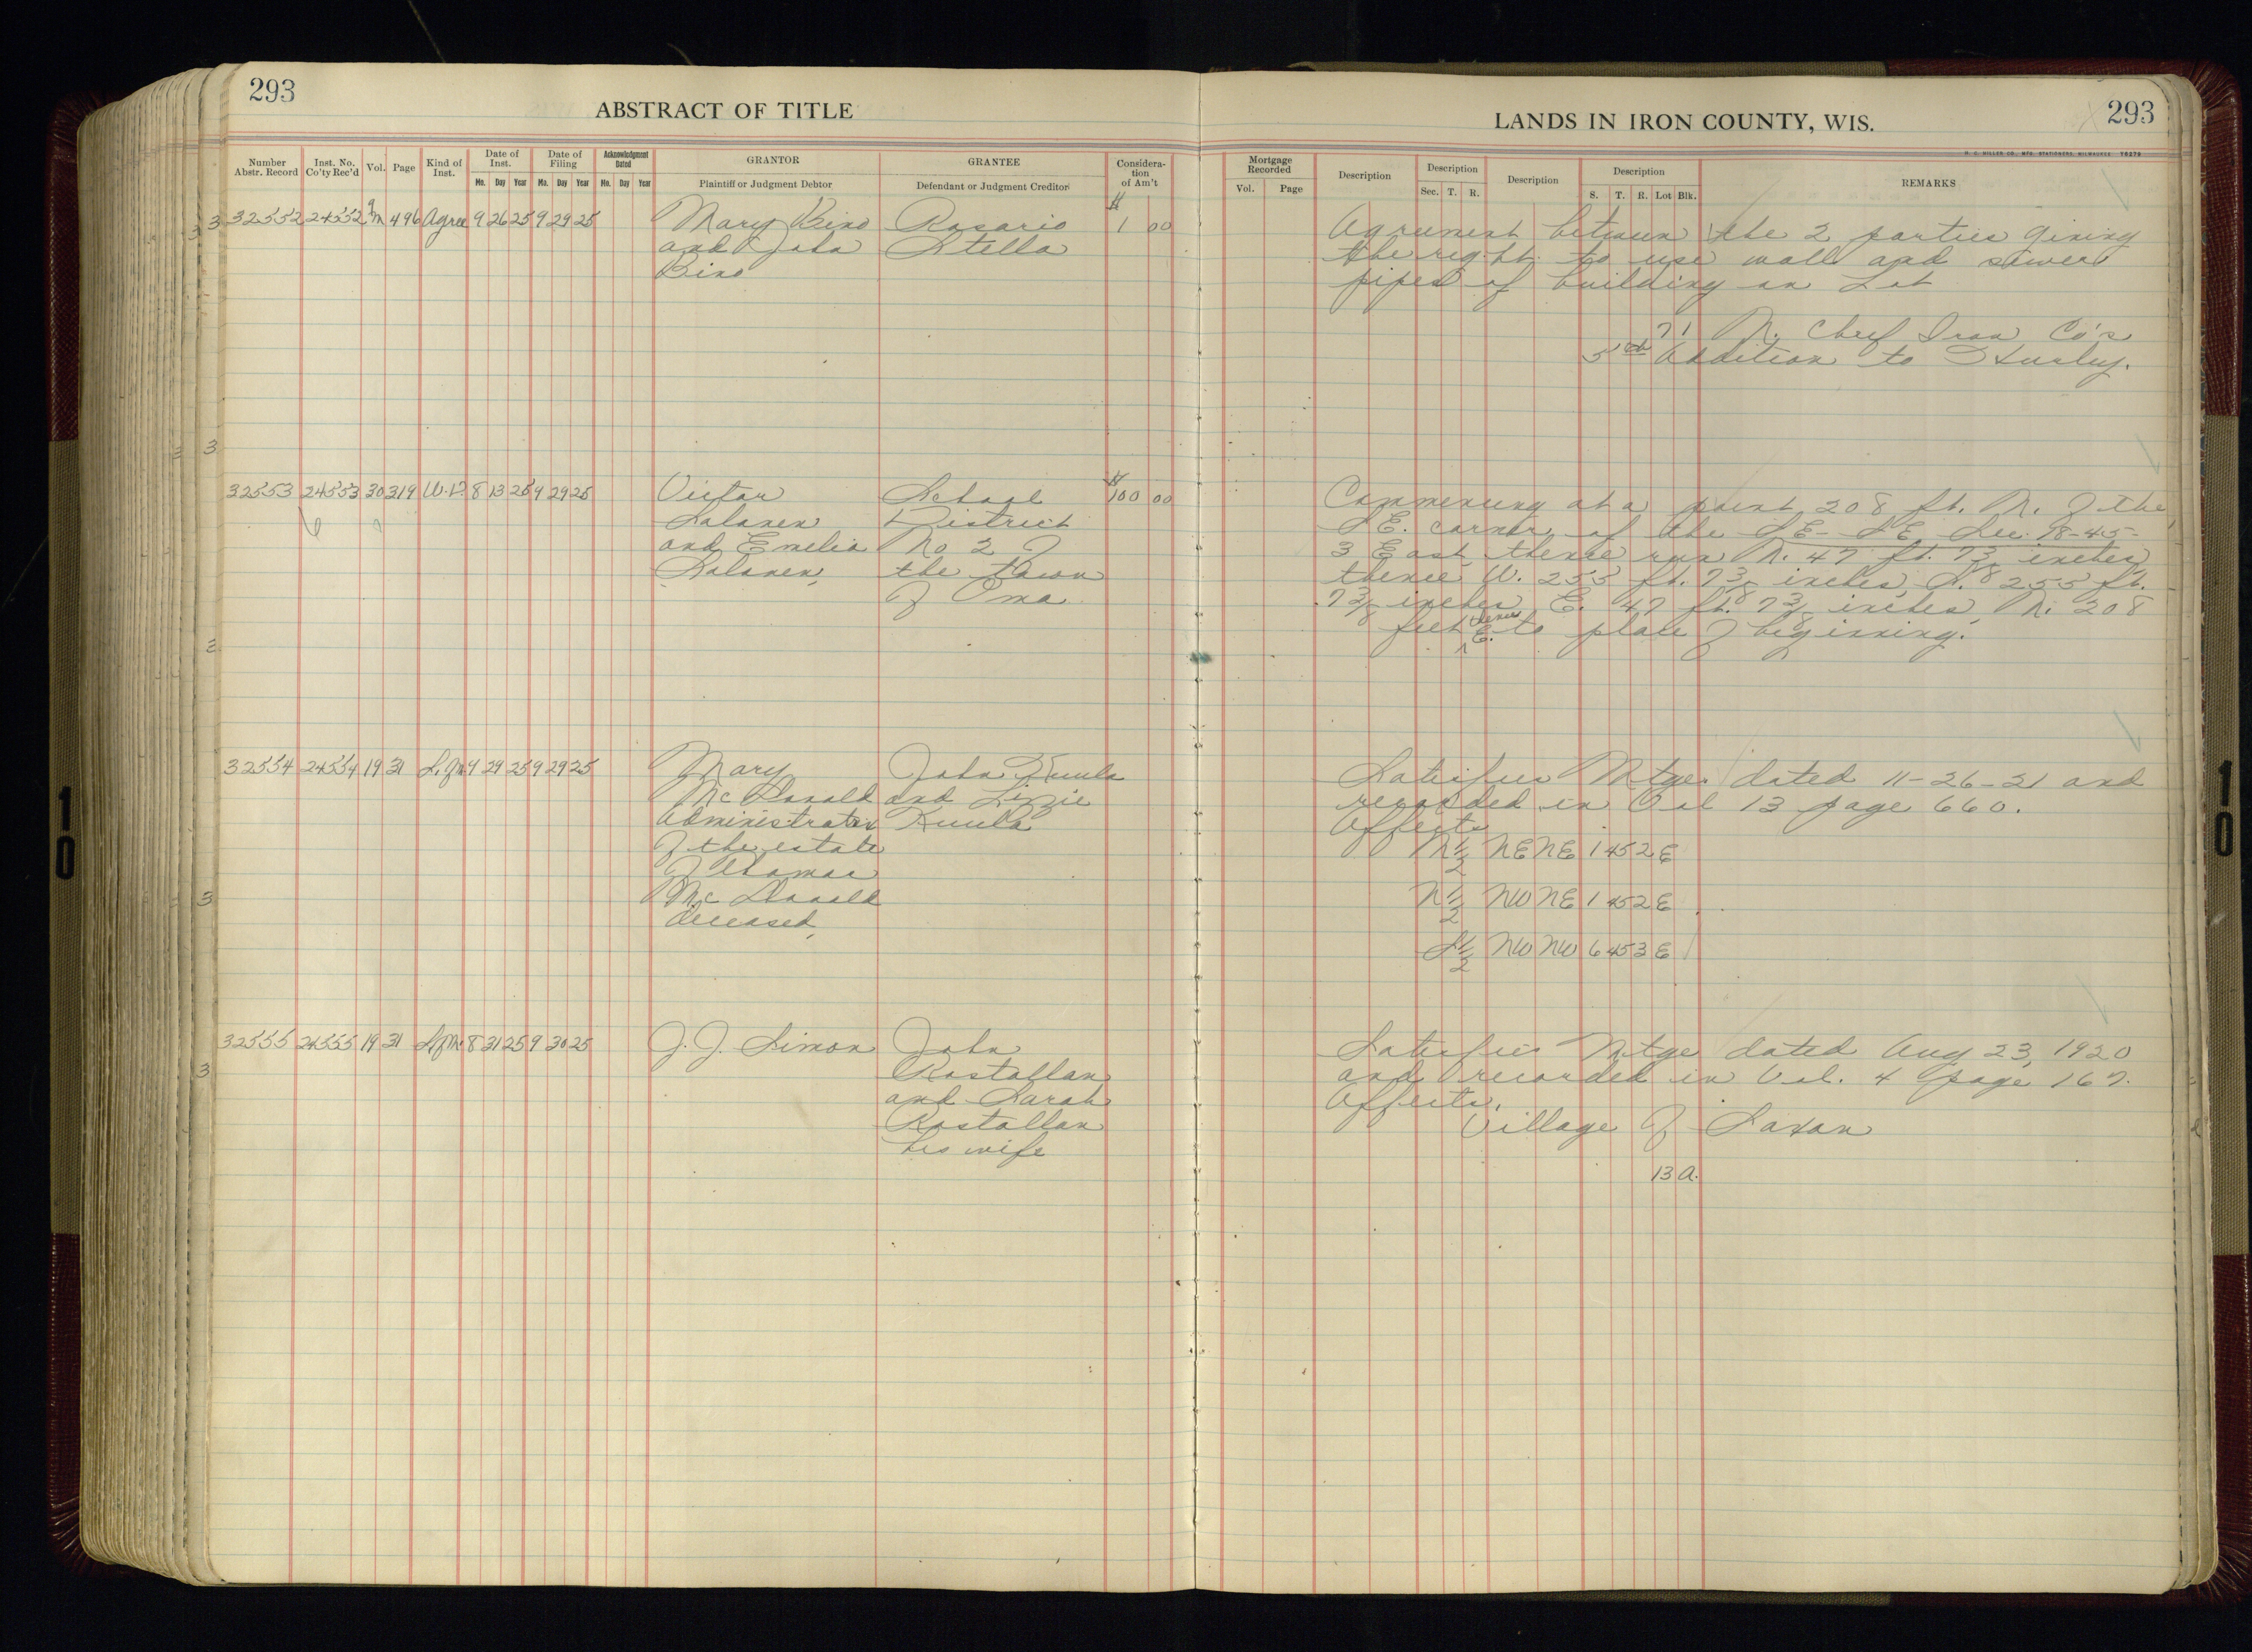 293
ABSTRACT OF TITLE
LANDS IN IRON COUNTY, WIS.
293
H. C. MILLER CO., MFG. STATIONERS, MILWAUKEE 75279
Number Abstr. Record
Inst. No. Co'ty Rec'd
Vol.
Page
Kind of Inst.
Date of Inst.
Mo. Day Year
Date of Filing
Mo. Day Year
Acknowledgment Dated
Mo. Day Year
GRANTOR
Plaintiff or Judgment Debtor
GRANTEE
Defendant or Judgment Creditor
Considera-
tion
of Am't
Mortgage Recorded
Vol. Page
Description
Description
Sec. T. R.
Description
Description
S. T. R. Lot Blk.
REMARKS
3 32552 24552 M 496 Agree 9 26 25 9 29 25 Mary Bino Rosario $ 1 00
and John Stella
Bino
Agreement between the 2 parties giving
the right to use wall and sewer
pipes of building on Lot
71 N. Chief Iron Co's
5th Addition to Hurley.
3
32553 24553 30 319 W.D. 8 13 25 9 29 25 Victor School $ 100 00
Salonen District
and Emelia No 2 of
Salonen, the Town
of Oma
Commencing at a point 208 ft. N. of the
SE. corner of the SE - SE Sec. 18-45-
3 East thence run N. 47 ft. 7 3/8 inches,
thence W. 255 ft. 7 3/8 inches, S. 255 ft.
7 3/8 inches, E. 47 ft. 7 3/8 inches, N. 208
feet thence E. to place of beginning.
2
32554 24554 19 31 S.of M. 9 29 25 9 29 25 Mary John Kuula
McDonald and Lizzie
Administratrix Kuula
of the estate
of Thomas
McDonald
deceased,
Satisfies Mtge. dated 11-26-21 and
recorded in Vol 13 page 660.
Affects
N 1/2 NE NE 1 45 2 E
N 1/2 NW NE 1 45 2 E
S 1/2 NW NW 6 45 3 E
3
32555 24555 19 31 S of M. 8 31 25 9 30 25 J. J. Simon John
Rostollan
and Sarah
Rostollan
his wife
Satisfies Mtge dated Aug 23, 1920
and recorded in Vol. 4 page 167.
Affects,
Village of Saxon
13 A.
3
10
10